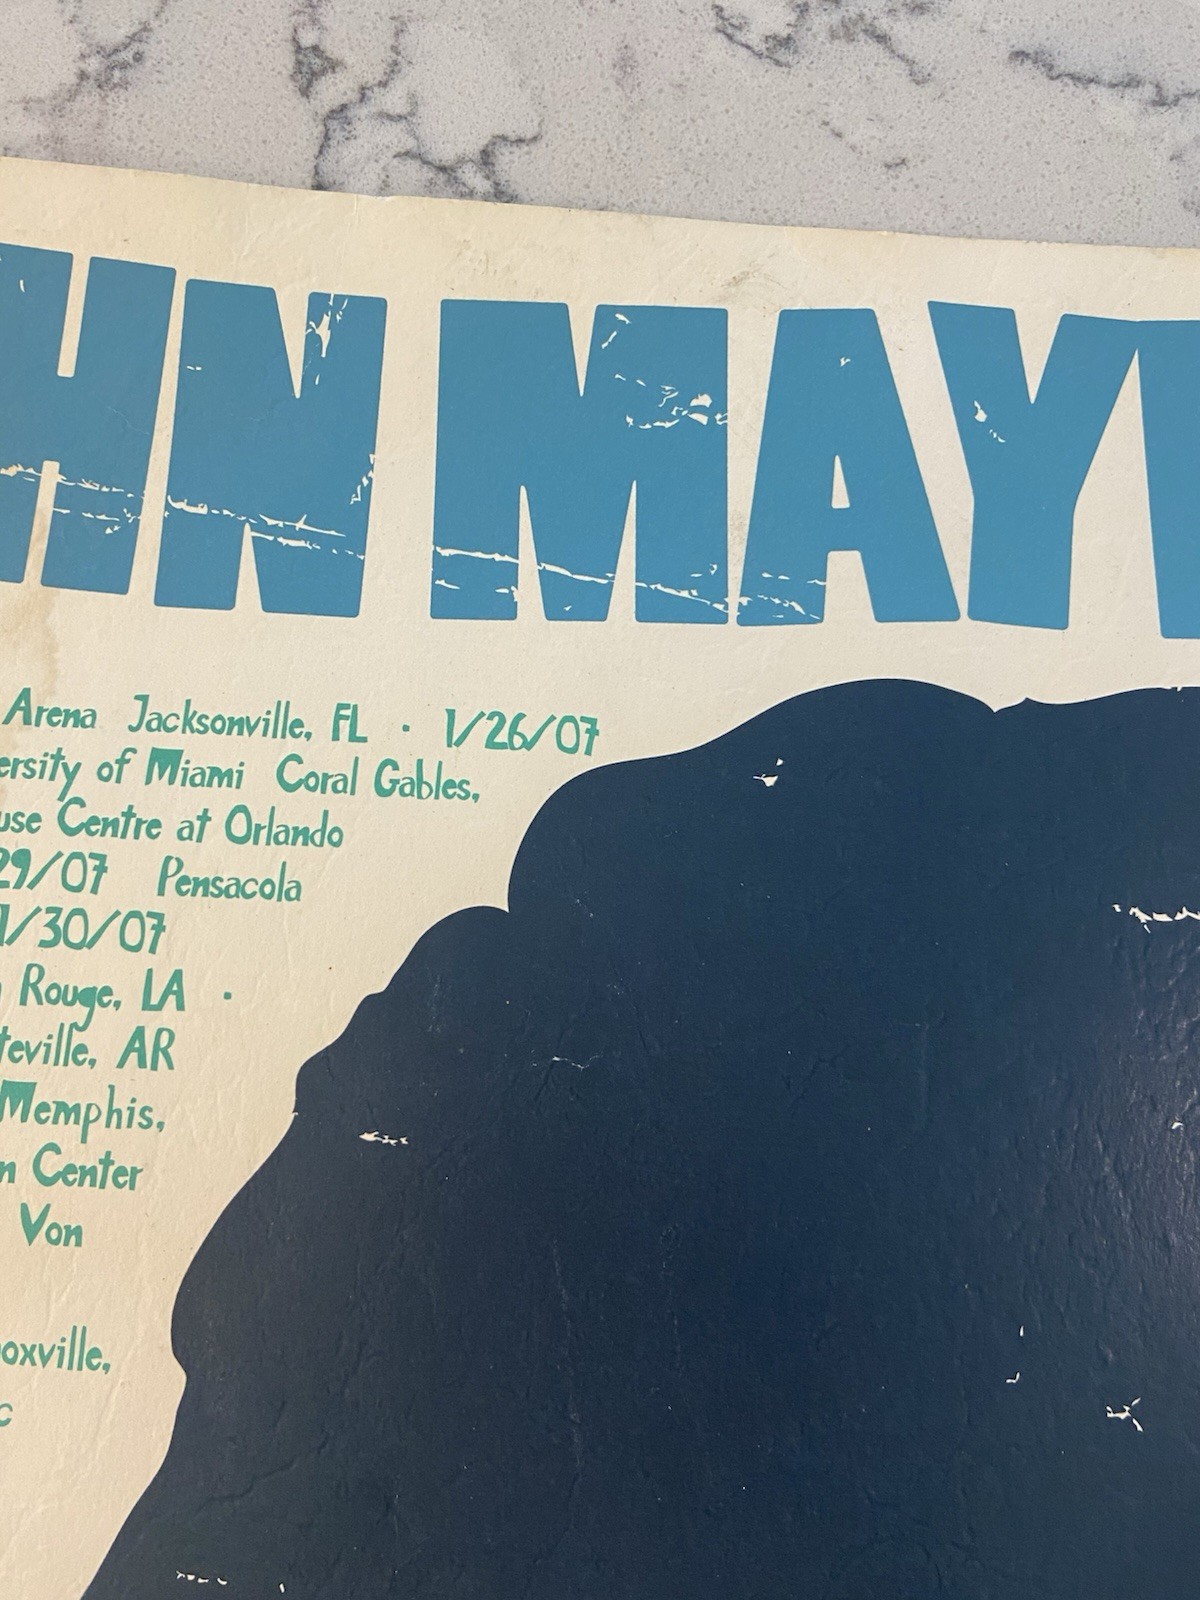 HN MAY
Arena Jacksonville, FL · 1/26/07
ersity of Miami Coral Gables,
use Centre at Orlando
29/07 Pensacola
1/30/07
Rouge, LA ·
teville, AR
Memphis,
n Center
Von
oxville,
c